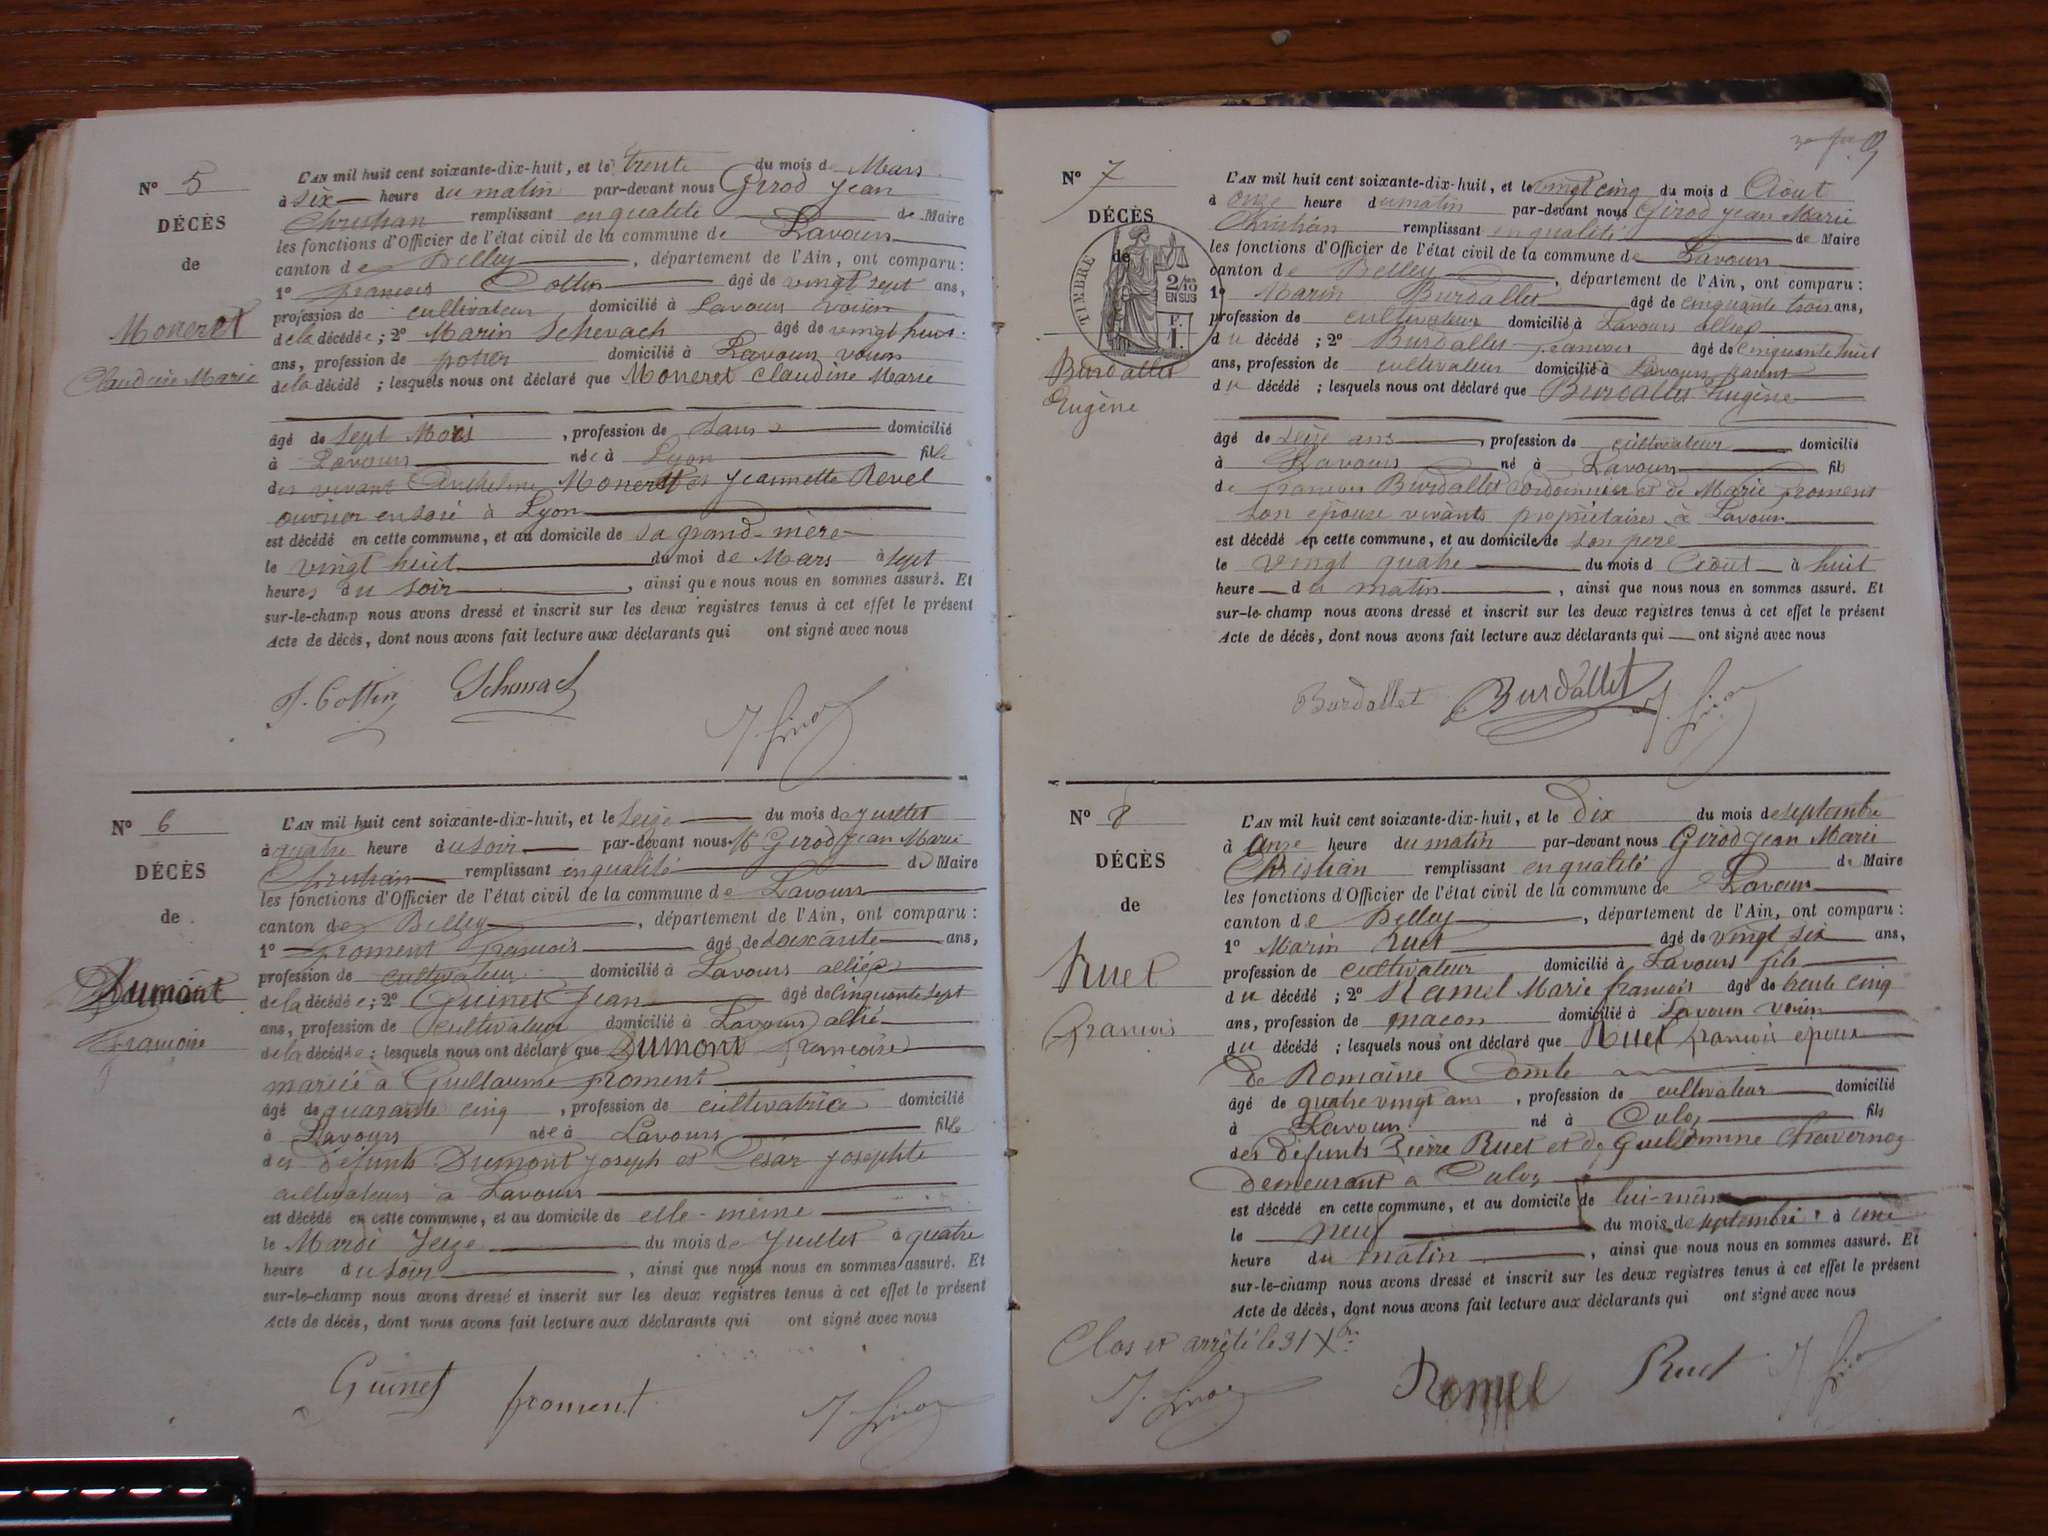 N° 5
DÉCÈS
de
Moneret
Claudine Marie
L'AN mil huit cent soixante-dix-huit, et le trente du mois de Mars
à six heure du matin par-devant nous Girod Jean
Christian remplissant en qualité de Maire
les fonctions d'Officier de l'état civil de la commune de Lavours
canton de Belley, département de l'Ain, ont comparu :
1° françois Cottin âgé de vingt sept ans,
profession de cultivateur domicilié à Lavours voisin
de la décédée ; 2° Marin âgé de vingt huit
ans, profession de potier domicilié à Lavours voisin
de la décédé ; lesquels nous ont déclaré que Moneret Claudine Marie
âgé de sept Mois, profession de sans domicilié
à Lavours née à Lyon fille
des vivant Anthelme Moneret et Jeannette Revel
ouvrier en soie à Lyon
est décédé en cette commune, et au domicile de sa grand-mère
le vingt huit du moi de Mars à sept
heures du soir, ainsi que nous nous en sommes assuré. Et
sur-le-champ nous avons dressé et inscrit sur les deux registres tenus à cet effet le présent
Acte de décès, dont nous avons fait lecture aux déclarants qui ont signé avec nous
f. Cottin
J. Girod
N° 6
DÉCÈS
de
Dumont
francoise
L'AN mil huit cent soixante-dix-huit, et le seize du mois de Juillet
à quatre heure du soir par-devant nous M Girod Jean Marie
Christian remplissant en qualité de Maire
les fonctions d'Officier de l'état civil de la commune de Lavours
canton de Belley, département de l'Ain, ont comparu :
1° froment francois âgé de soixante ans,
profession de cultivateur domicilié à Lavours alliée
de la décédée ; 2° Guinet Jean âgé de cinquante sept
ans, profession de cultivateur domicilié à Lavours allié
de la décédée ; lesquels nous ont déclaré que Dumont francoise
mariée à Guillaume froment
âgé de quarante cinq, profession de cultivatrice domicilié
à Lavours née à Lavours fille
des défunts Dumont Joseph et Cesar Josephte
cultivateurs à Lavours
est décédé en cette commune, et au domicile de elle-même
le Mardi seize du mois de Juillet à quatre
heure du soir, ainsi que nous nous en sommes assuré. Et
sur-le-champ nous avons dressé et inscrit sur les deux registres tenus à cet effet le présent
Acte de décès, dont nous avons fait lecture aux déclarants qui ont signé avec nous
Guinet froment J. Girod
N° 7
DÉCÈS
de
TIMBRE
2/10
EN SUS
Burdallet
Eugène
L'AN mil huit cent soixante-dix-huit, et le vingt cinq du mois d Août
à onze heure du matin par-devant nous Girod Jean Marie
Christian remplissant en qualité de Maire
les fonctions d'Officier de l'état civil de la commune de Lavours
canton de Belley, département de l'Ain, ont comparu :
1° Marin Burdallet âgé de cinquante trois ans,
profession de cultivateur domicilié à Lavours alliée
du décédé ; 2° Burdallet francois âgé de cinquante huit
ans, profession de cultivateur domicilié à Lavours
du décédé ; lesquels nous ont déclaré que Burdallet Eugène
âgé de seize ans, profession de cultivateur domicilié
à Lavours né à Lavours fils
de francois Burdallet Cordonnier et de Marie froment
son épouse vivants propriétaires à Lavours
est décédé en cette commune, et au domicile de son père
le vingt quatre du mois d Août à huit
heure du matin, ainsi que nous nous en sommes assuré. Et
sur-le-champ nous avons dressé et inscrit sur les deux registres tenus à cet effet le présent
Acte de décès, dont nous avons fait lecture aux déclarants qui ont signé avec nous
Burdallet Burdallet J. Girod
N° 8
DÉCÈS
de
Ruet
francois
L'AN mil huit cent soixante-dix-huit, et le dix du mois de septembre
à onze heure du matin par-devant nous Girod Jean Marie
Christian remplissant en qualité de Maire
les fonctions d'Officier de l'état civil de la commune de Lavours
canton de Belley, département de l'Ain, ont comparu :
1° Marin Ruet âgé de vingt six ans,
profession de cultivateur domicilié à Lavours fils
du décédé ; 2° Ramel Marie francois âgé de trente cinq
ans, profession de macon domicilié à Lavours voisin
du décédé ; lesquels nous ont déclaré que Ruet francois époux
de Romaine Comte
âgé de quatre vingt ans, profession de cultivateur domicilié
à Lavours né à Culoz fils
des défunts Pierre Ruet et de Guillemine Chavernoz
demeurant a Culoz
est décédé en cette commune, et au domicile de lui-même
le neuf du mois de septembre à une
heure du matin, ainsi que nous nous en sommes assuré. Et
sur-le-champ nous avons dressé et inscrit sur les deux registres tenus à cet effet le présent
Acte de décès, dont nous avons fait lecture aux déclarants qui ont signé avec nous
Clos et arrêté le 31 Xbre
J. Girod Ramel Ruet J. Girod